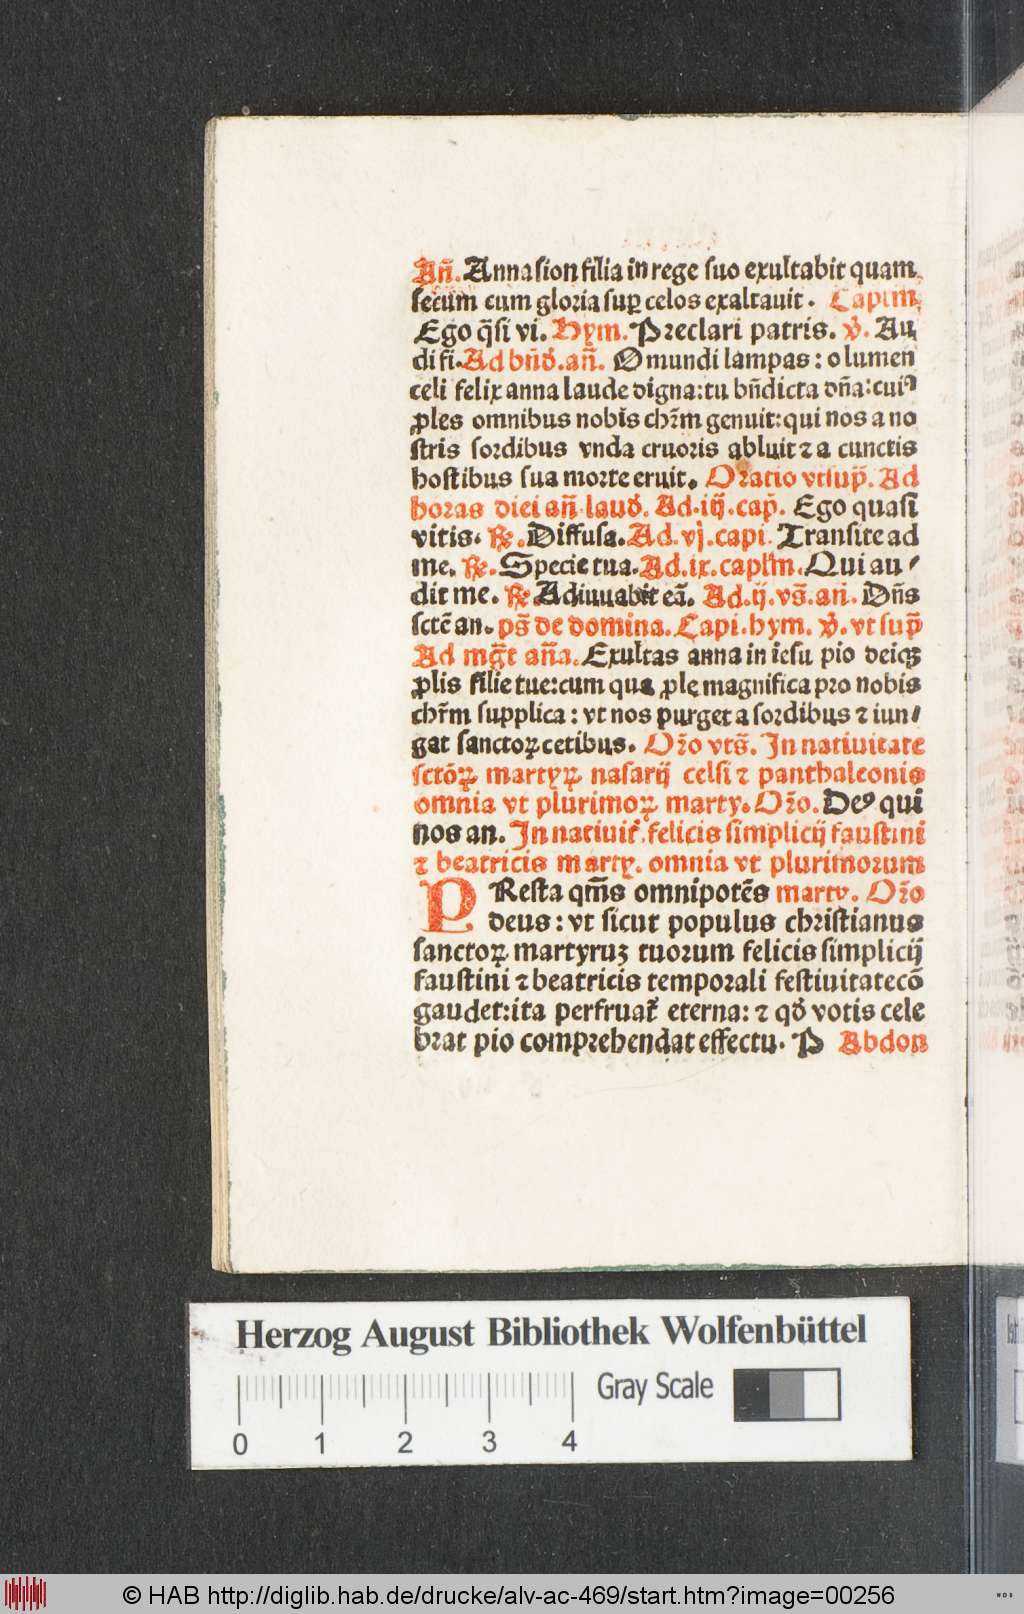 Añ. Anna sion filia in rege suo exultabit quam
secum cum gloria suꝑ celos exaltauit. Capim̄.
Ego q̄si vi. Hym. Preclari patris. ℣. Au
di fi. Ad bn̄d̓. an̄. O mundi lampas: o lumen
celi felix anna laude digna: tu bn̄dicta dn̄a: cuiꝰ
ꝓles omnibus nobis chr̄m genuit: qui nos a no
stris sordibus vnda cruoris abluit ⁊ a cunctis
hostibus sua morte eruit. Oratio vtsup̄. Ad
horas diei an̄ laud̓. Ad .iij. cap̄. Ego quasi
vitis. ℟. Diffusa. Ad .vj. capi. Transite ad
me. ℟. Specie tua. Ad .ix. caplm̄. Qui au⸗
dit me. ℟. Adiuuabit eā. Ad .ij. vs̄. an̄. Dn̄s
sctē an. ps̄ de domina. Capi. hym. ℣. vt sup̄
Ad mg̅t an̄a. Exultas anna in iesu pio deiqꝫ
ꝓlis filie tue: cum qua ꝓle magnifica pro nobis
chr̄m supplica: vt nos purget a sordibus ⁊ iun⸗
gat sanctoꝝ cetibus. Or̄o vts̄. In natiuitate
sctōꝝ martyꝝ nasarij celsi ⁊ panthaleonis
omnia vt plurimoꝝ marty. Or̄o. Deꝰ qui
nos an. In natiuit̓. felicis simplicij faustini
⁊ beatricis marty. omnia vt plurimorum
PResta qm̄s omnipotēs marty. Or̄o
deus: vt sicut populus christianus
sanctoꝝ martyruꝫ tuorum felicis simplicij
faustini ⁊ beatricis temporali festiuitate cō
gaudet: ita perfruat̓ eterna: ⁊ qd̓ votis cele
brat pio comprehendat effectu. P Abdon
Herzog August Bibliothek Wolfenbüttel
Gray Scale
0 1 2 3 4
© HAB http://diglib.hab.de/drucke/alv-ac-469/start.htm?image=00256